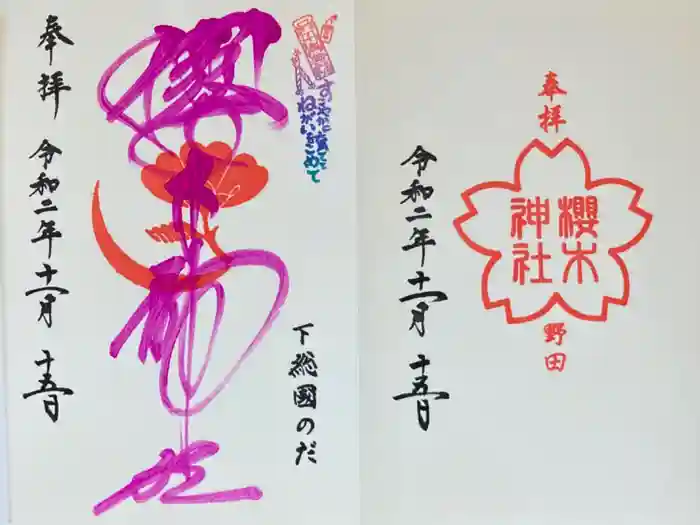 奉拝
令和二年十一月十五日
櫻木神社
すこやかに育てと
ねがいをこめて
下総國のだ
奉拝
櫻木
神社
野田
令和二年十一月十五日